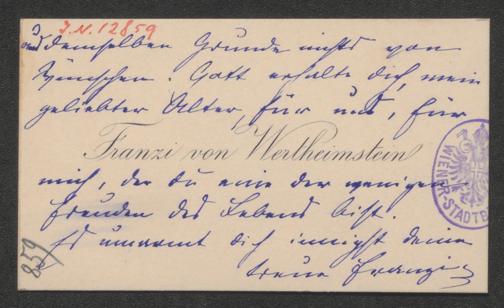 J.N. 12859
aus demselben Grunde nichts von
Wünschen. Gott erhalte dich, mein
geliebter Alter, für uns, für
Franzi von Wertheimstein
mich, der du eine der wenigen
Freuden des Lebens bist.
Es umarmt dich innigst deine
treue Franzi
859
WIENER-STADTB